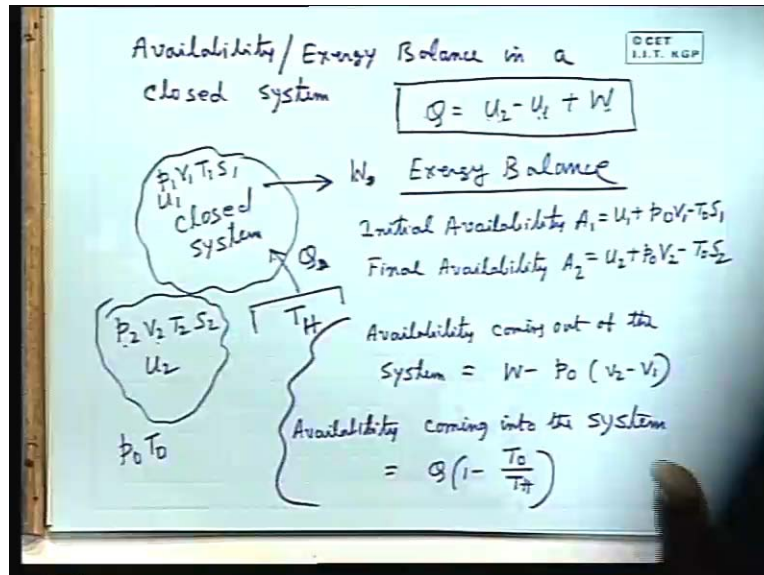 Availability/Exergy Balance in a
closed system
© CET
I.I.T. KGP
Q = U₂ - U₁ + W
p₁ V₁ T₁ S₁
U₁
closed
system
Exergy Balance
Initial Availability A₁ = U₁ + p₀V₁ - T₀S₁
Final Availability A₂ = U₂ + p₀V₂ - T₀S₂
T_H
p₂ V₂ T₂ S₂
U₂
p₀ T₀
Availability coming out of the
system = W - p₀ (V₂ - V₁)
Availability coming into the system
= Q(1 - T₀/T_H)